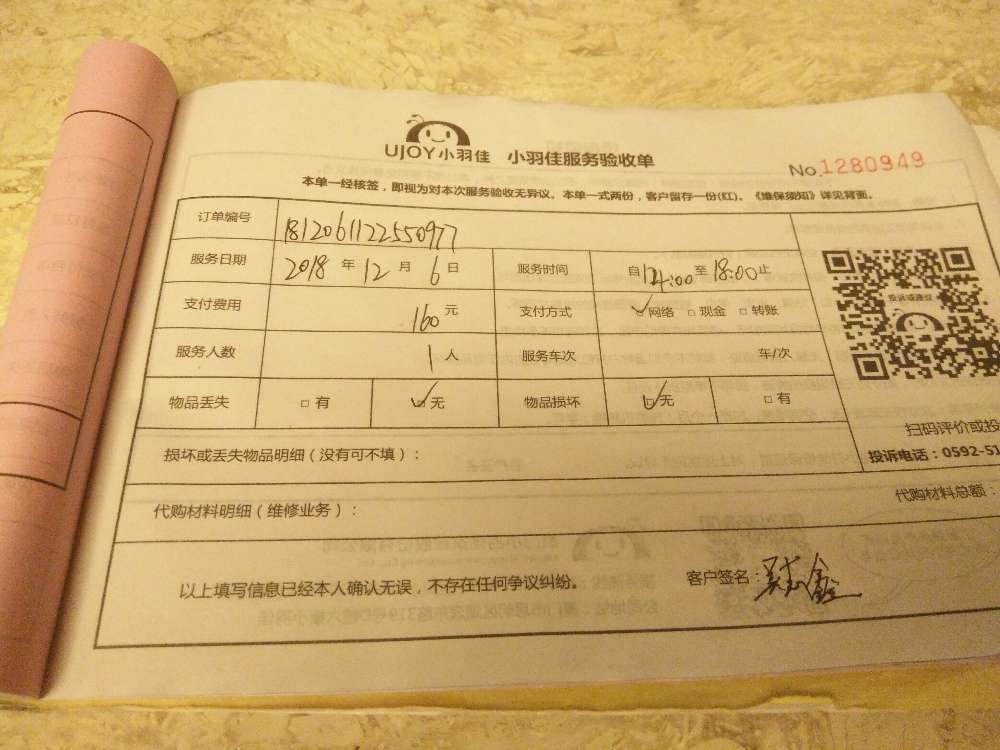 UJOY小羽佳 小羽佳服务验收单
No.1280949
本单一经核签，即视为对本次服务验收无异议。本单一式两份，客户留存一份(红)。《维保须知》详见背面。
订单编号 1812061122550977
服务日期 2018 年 12 月 6 日 服务时间 自 14:00 至 18:00 止
支付费用 160 元 支付方式 网络 □ 现金 □ 转账
投诉或建议
服务人数 1 人 服务车次 车/次
物品丢失 □ 有 ☑ 无 物品损坏 ☑ 无 □ 有
扫码评价或投
投诉电话：0592-51
损坏或丢失物品明细（没有可不填）：
代购材料明细（维修业务）： 代购材料总额：
以上填写信息已经本人确认无误，不存在任何争议纠纷。 客户签名：